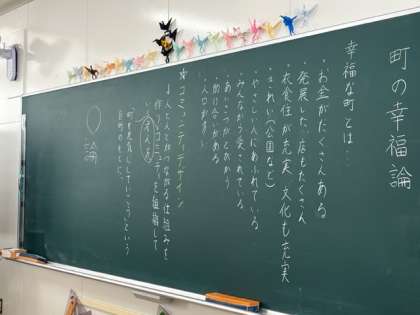 町の幸福論
幸福な町とは…
・お金がたくさんある
・発展した店もたくさん
・衣食住が充実 文化も充実
・きれい(公園など)
・やさしい人にあふれている
・みんなから愛されている
・あいさつがとびかう
・助け合いがある
・人口が多い
☆コミュニティデザイン
→人と人とがつながる仕組みを
作り、コミュニティを組織して
「町を元気にしていこう」という
目的のもとに、
論